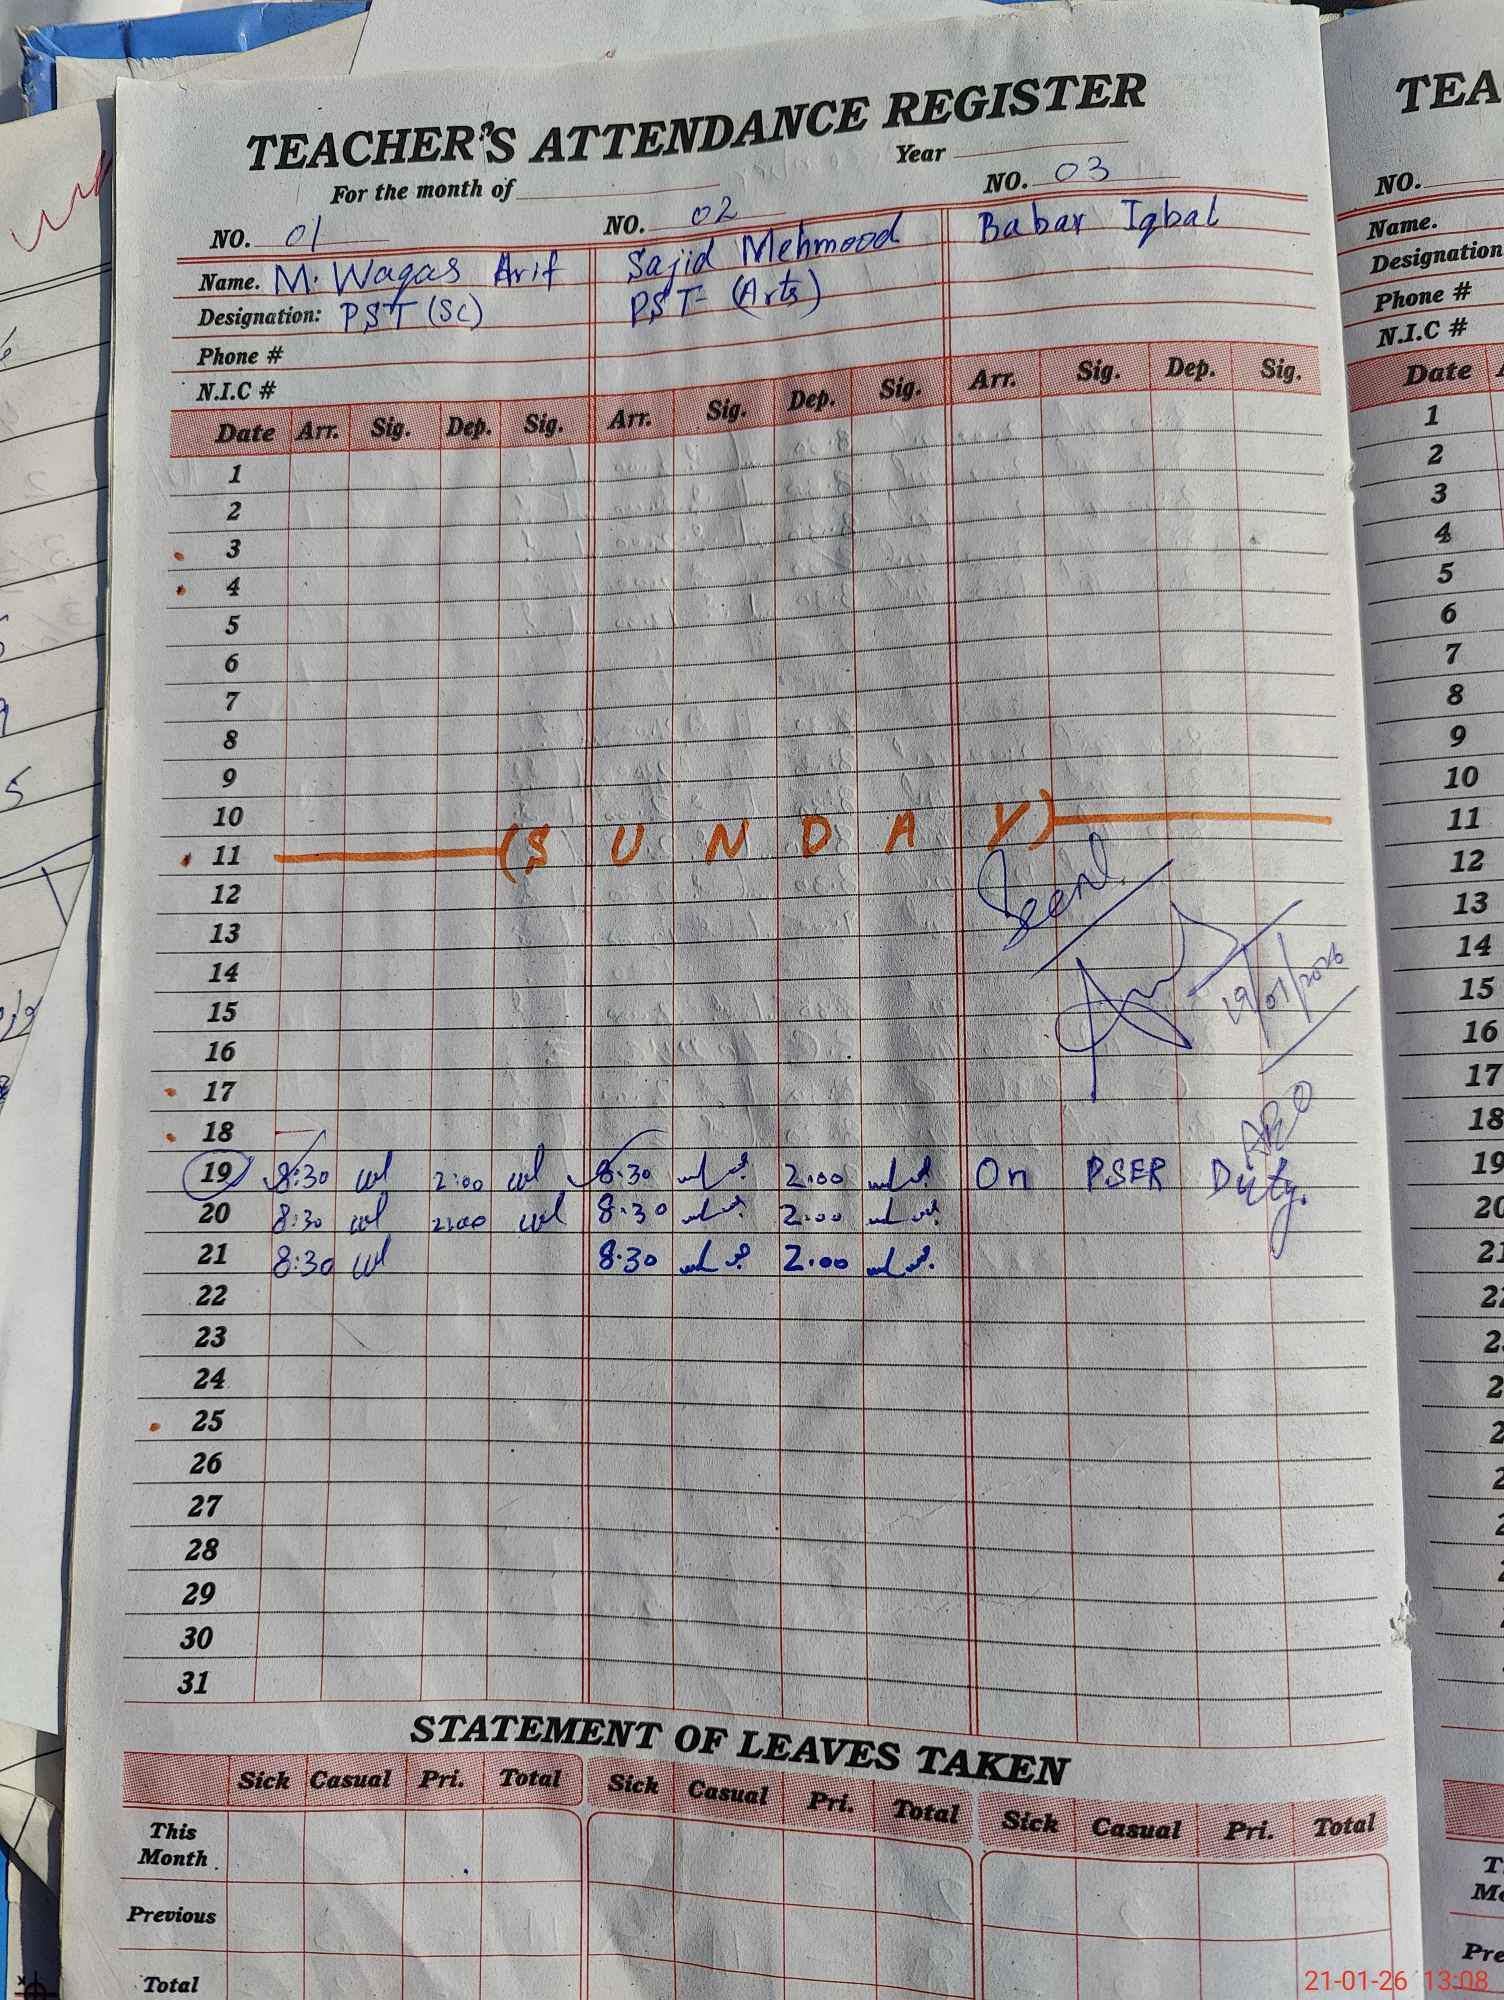 TEACHER'S ATTENDANCE REGISTER
For the month of Year
NO. 01 NO. 02 NO. 03
Name. M. Waqas Arif Sajid Mehmood Babar Iqbal
Designation: PST (Sc) PST (Arts)
Phone #
N.I.C #
Date Arr. Sig. Dep. Sig. Arr. Sig. Dep. Sig. Arr. Sig. Dep. Sig.
1
2
3
4
5
6
7
8
9
10
11 (SUNDAY)
12 Seen
13
14
15 19/01/2026
16
17
18 AEO
19 8:30 2:00 8:30 2:00 On PSER Duty.
20 8:30 2:00 8:30 2:00
21 8:30 8:30 2:00
22
23
24
25
26
27
28
29
30
31
STATEMENT OF LEAVES TAKEN
Sick Casual Pri. Total Sick Casual Pri. Total Sick Casual Pri. Total
This
Month
Previous
Total
TEA
NO.
Name.
Designation
Phone #
N.I.C #
Date
1
2
3
4
5
6
7
8
9
10
11
12
13
14
15
16
17
18
19
20
21
21-01-26 13:08